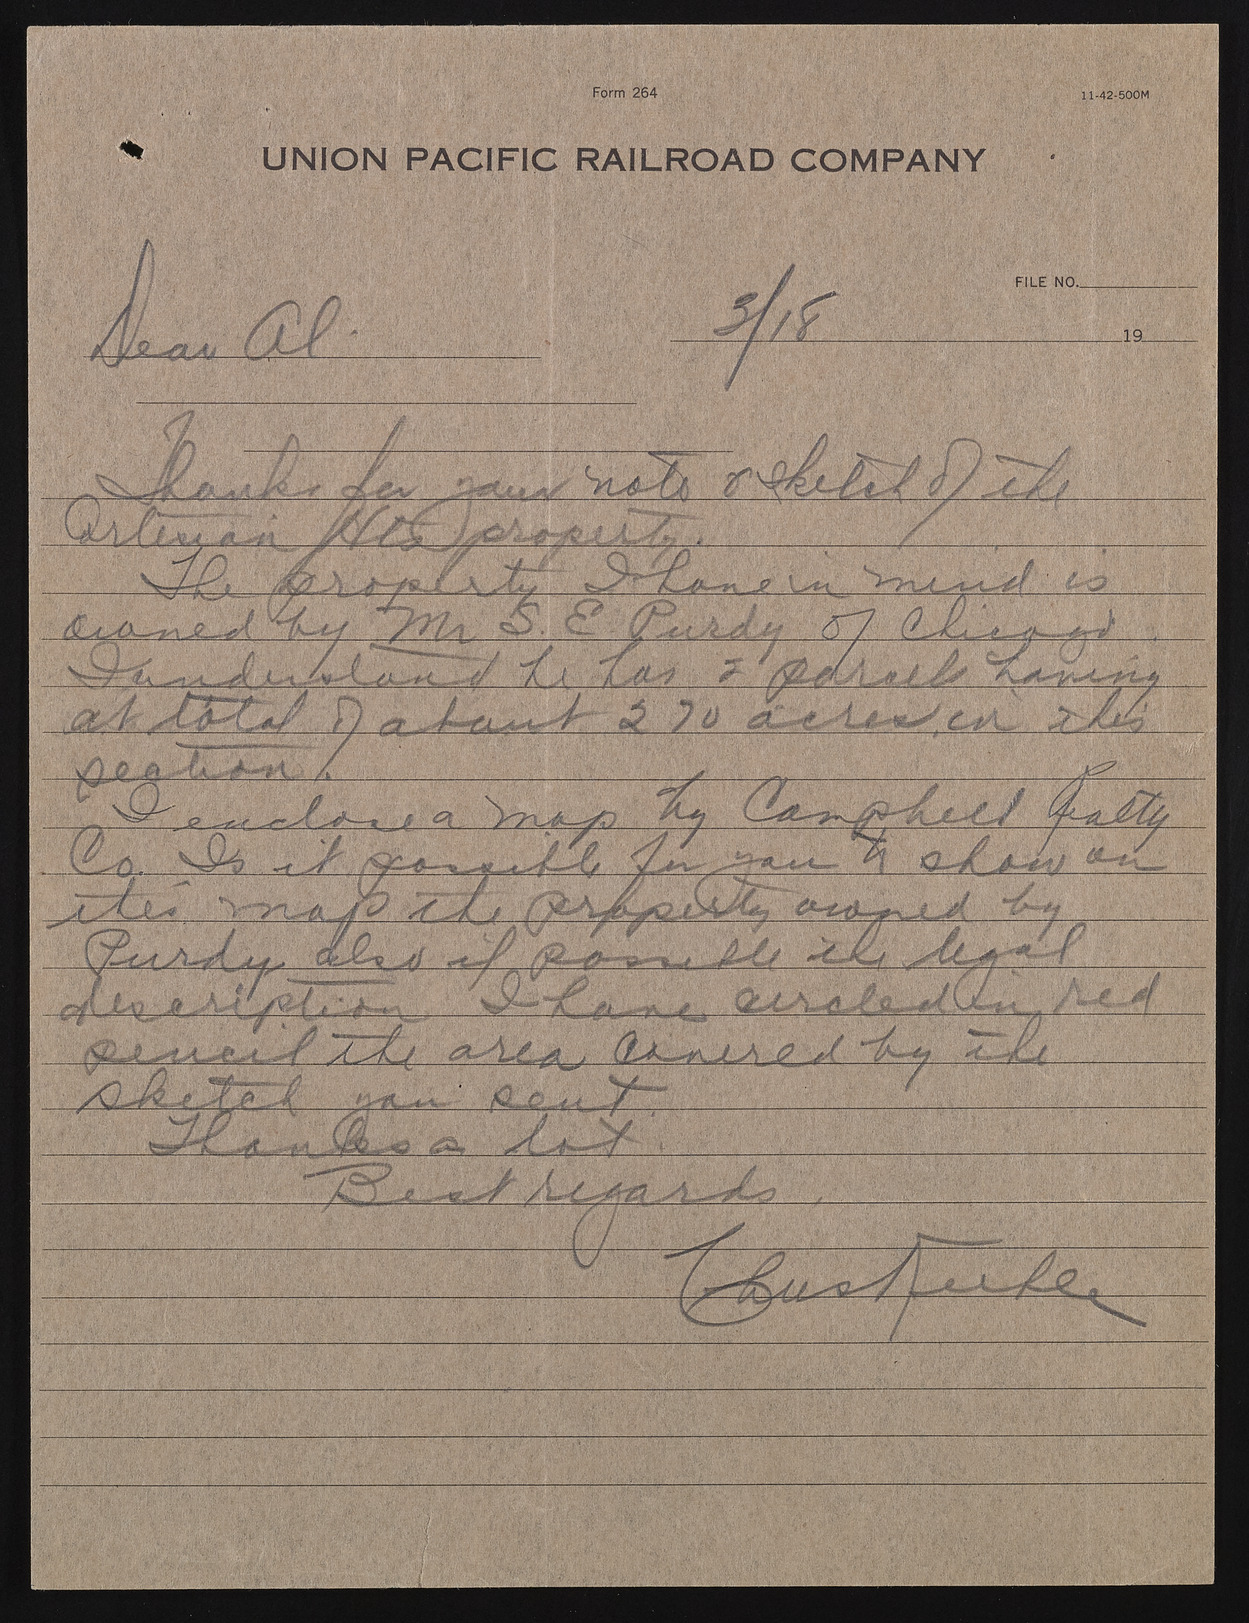 Form 264
11-42-500M
UNION PACIFIC RAILROAD COMPANY
FILE NO.
Dear Al
3/18
19
Thanks for your note & sketch of the
Artesian Hts property.
The property I have in mind is
owned by Mr S. E. Purdy of Chicago.
I understand he has 2 parcels having
at total of about 270 acres in this
section.
I enclose a map by Campbell Realty
Co. Is it possible for you to show on
this map the property owned by
Purdy also if possible the legal
description I have circled in red
pencil the area covered by the
sketch you sent.
Thanks a lot.
Best regards,